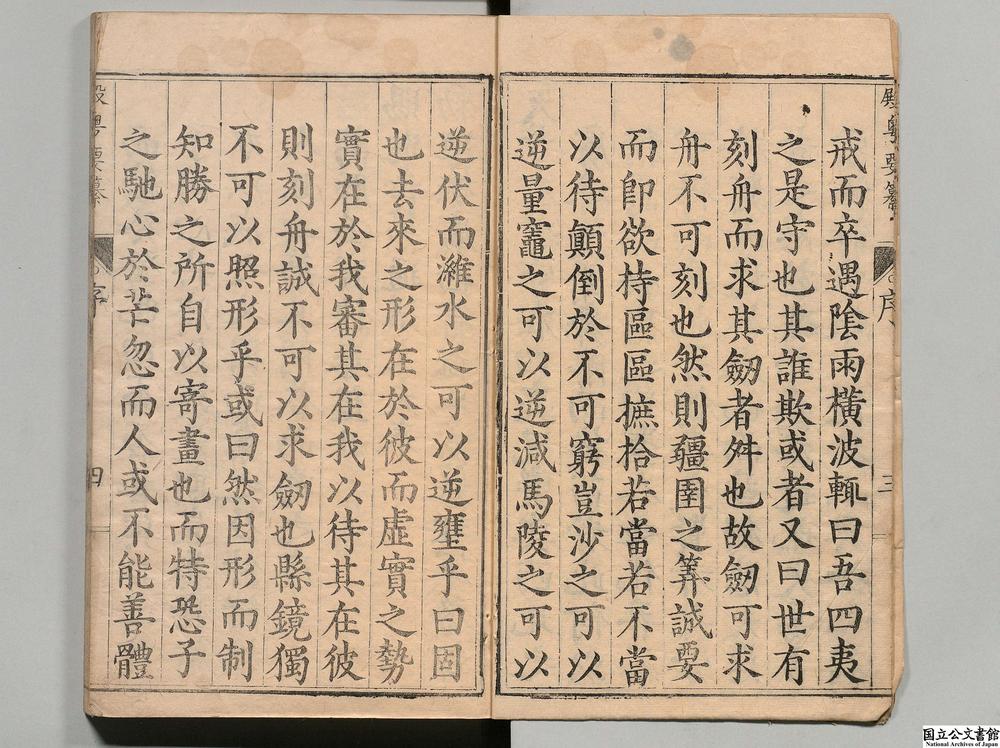 戒而卒遇陰雨橫波輒曰吾四夷
之是守也其誰欺或者又曰世有
刻舟而求其劒者舛也故劒可求
舟不可刻也然則疆圉之筭誠要
而卽欲持區區摭拾若當若不當
以待顚倒於不可窮豈沙之可以
逆量竈之可以逆減馬陵之可以
逆伏而濰水之可以逆壅乎曰固
也去來之形在於彼而虛實之勢
實在於我審其在我以待其在彼
則刻舟誠不可以求劒也縣鏡獨
不可以照形乎或曰然因形而制
知勝之所自以寄畫也而特恐子
之馳心於芒忽而人或不能善體
殿粵要纂
序
三
殿粵要纂
序
四
国立公文書館
National Archives of Japan